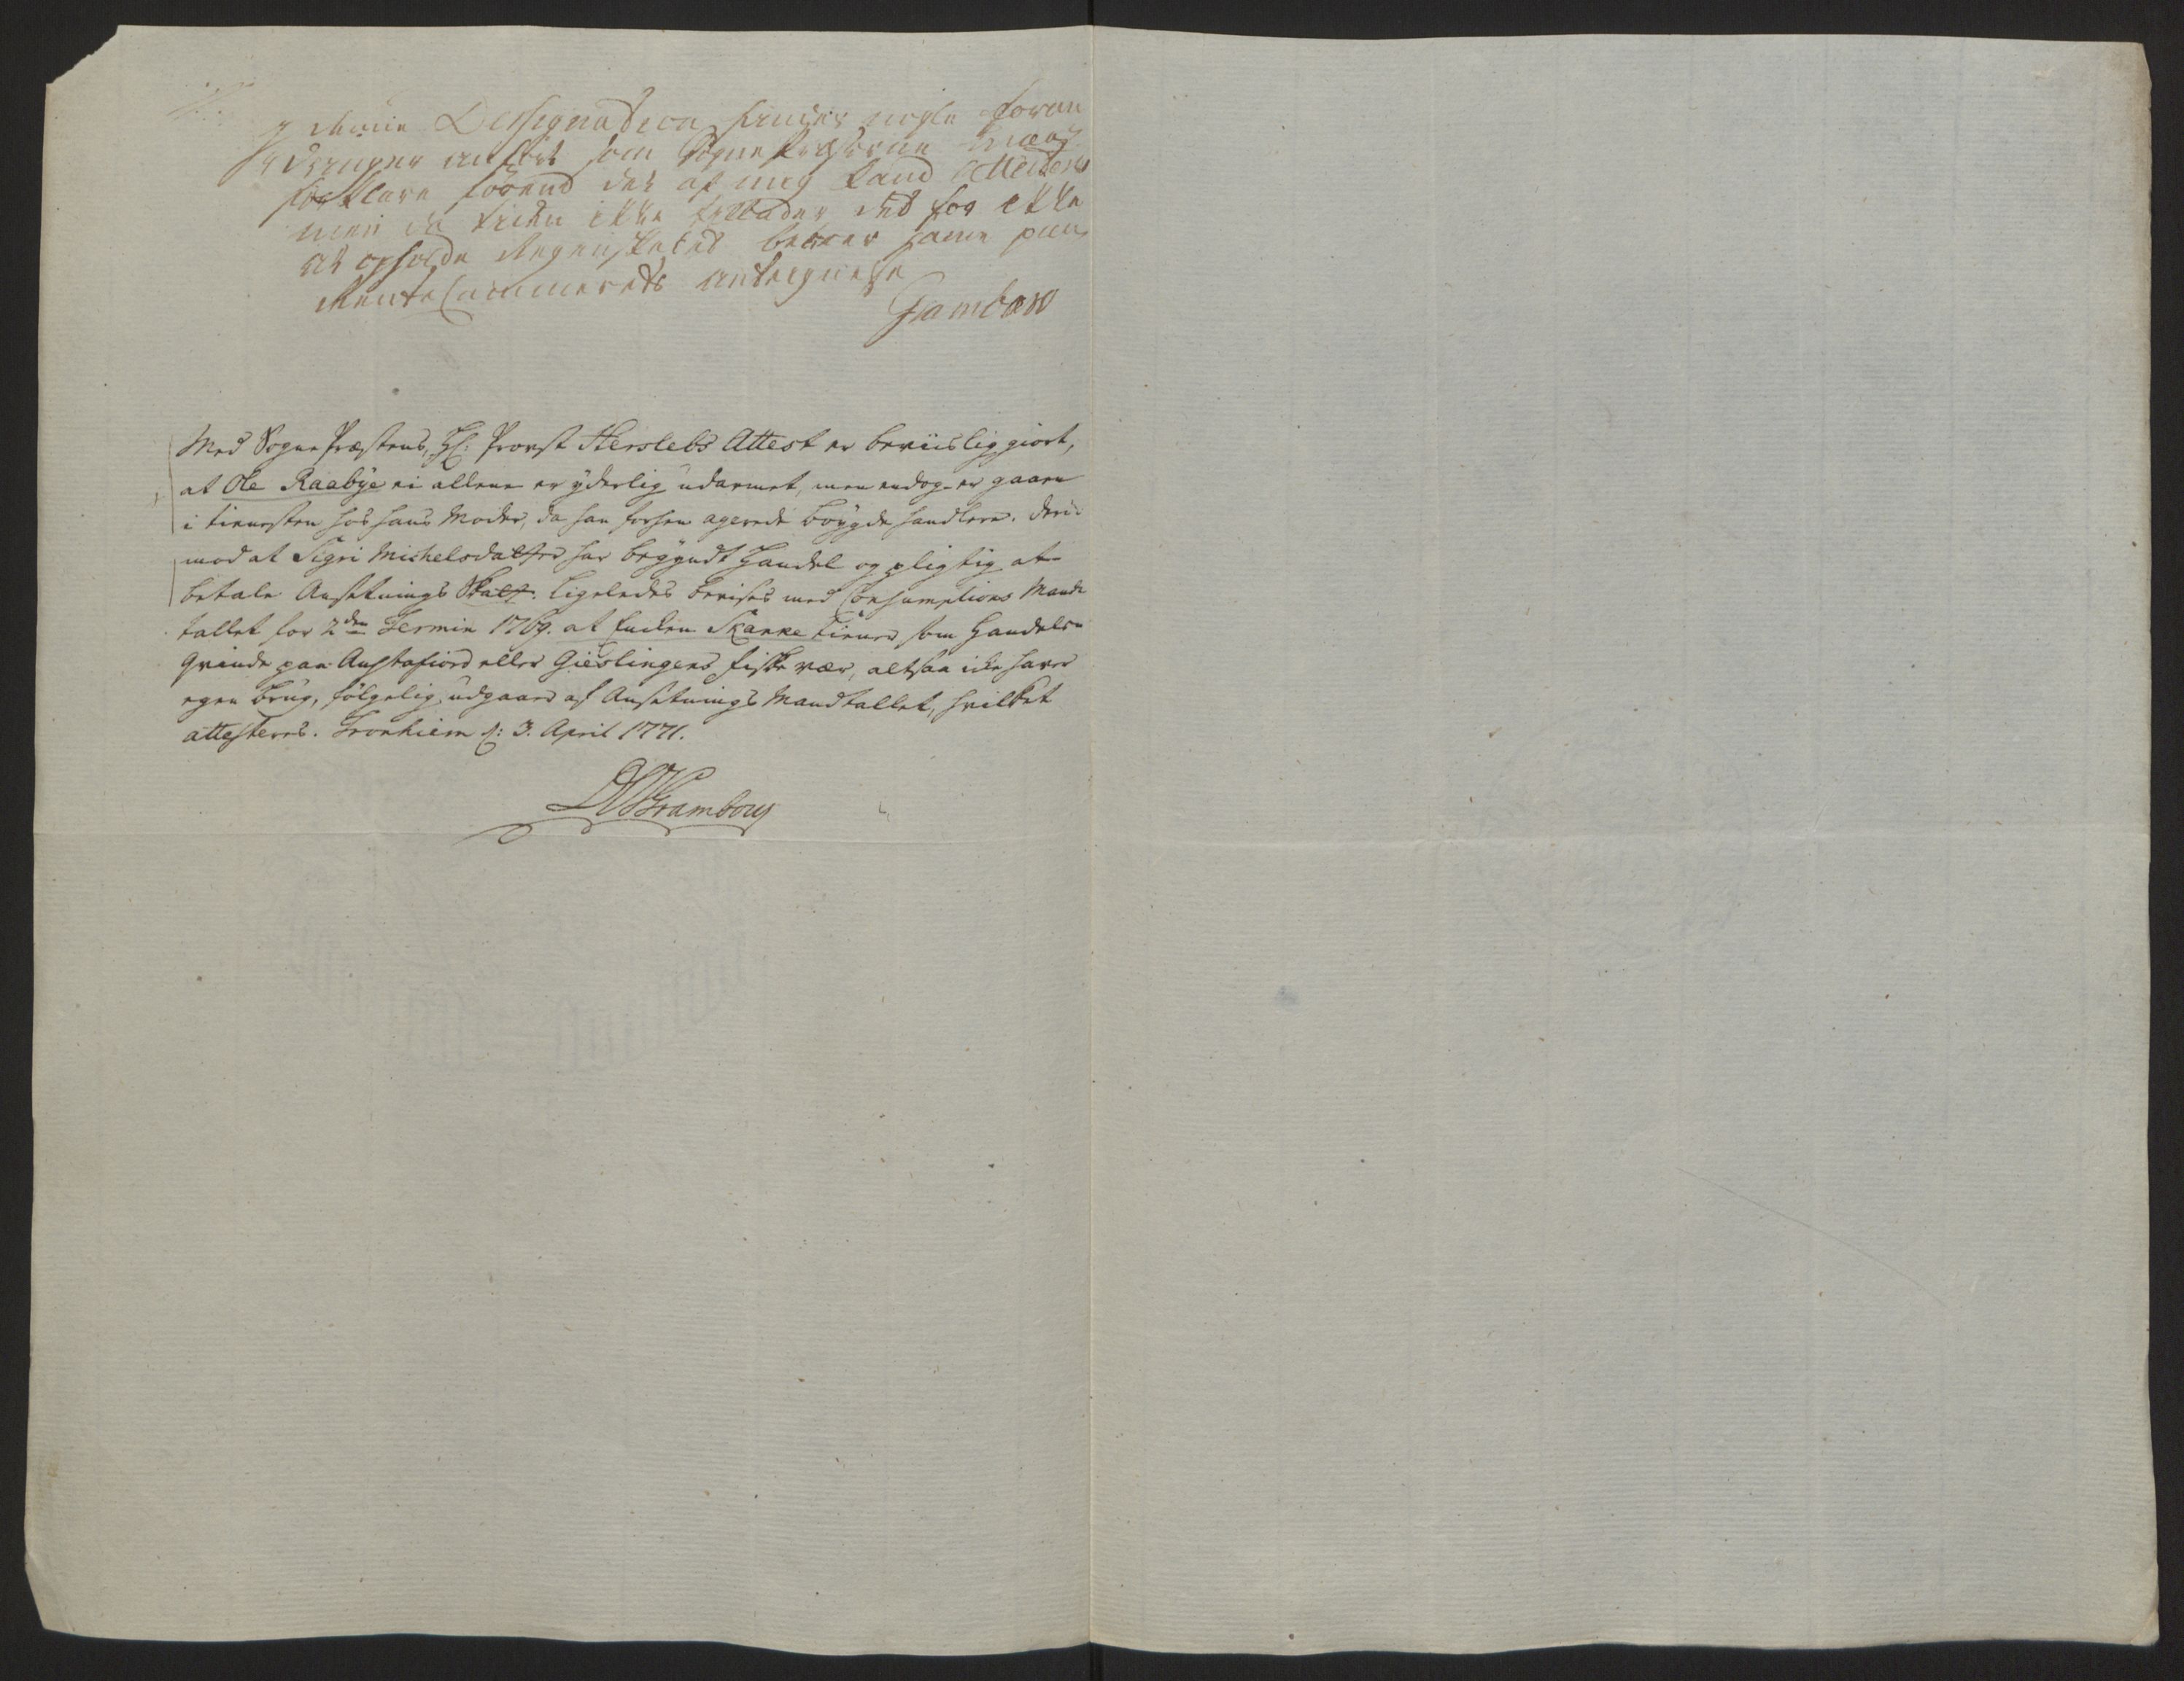 I denne Designation findes nogle foran
dringer anført som Sognepræsterne maae
forklare førend det af mig kand Attesteres
men da tiden ikke tillader det for ikke
at opholde Regenskabet beroer samme paa
Rente Cammerets antegnelse
Grambow
Med Sogne Præstens, Hr. Provst Herslebs Attest er beviislig giort,
at Ole Raabye ei allene er yderlig udarmet, men endog er gaaen
i tienesten hos hans Moder, da han forhen agerede bøygde handlere. Deri-
mod at Sigri Michelsdatter har begyndt Handel og pligtig at
betale Ansetnings Skatt. Ligeledes bevises med Consumptions Mand
tallet for 2den Termin 1769. at Enken Skanke tiener som Handels-
Qvinde paa Austafiord eller Gieslingens fiskevær, altsaa icke haver
egen brug, følgelig udgaaer af Ansetnings Mandtallet, hvilket
attesteres. Tronhiem d: 3. April 1771.
Grambow